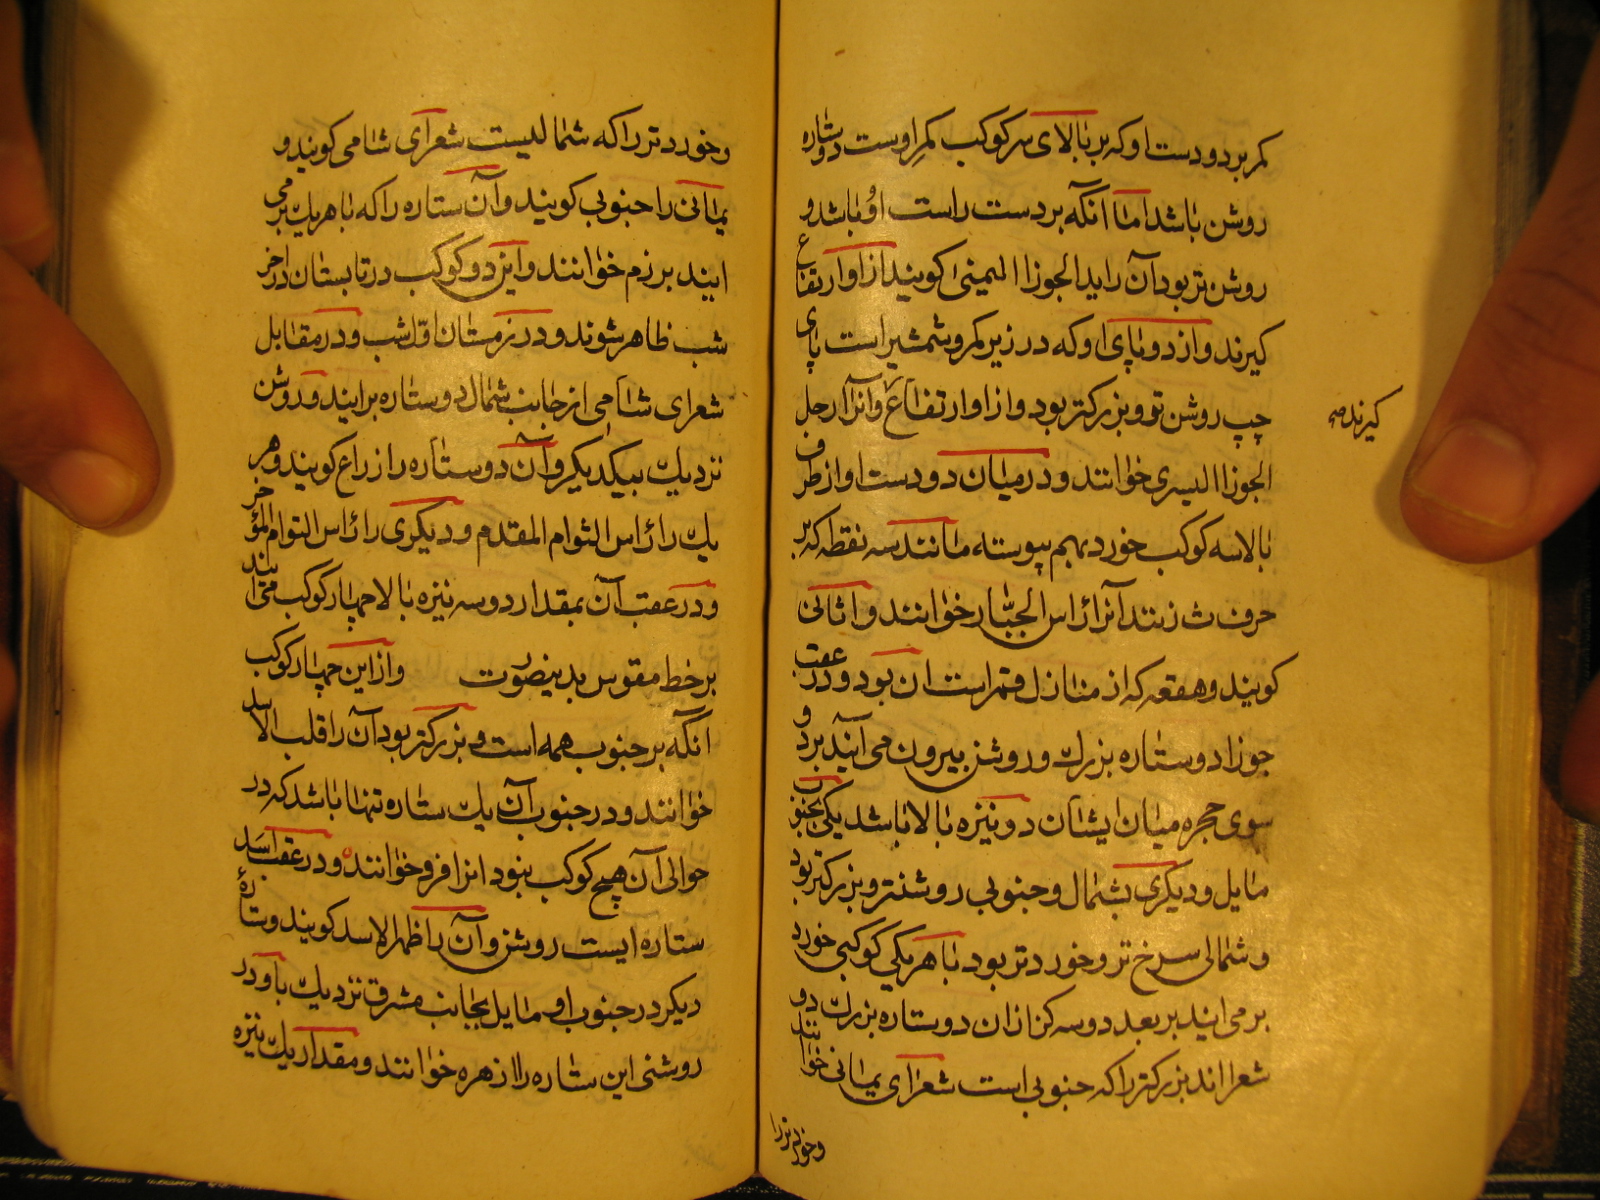 کمر بر دو دست او که بر بالای سر کوکب کمر اوست دو ستاره
روشن باشد اما آنکه بر دست راست او باشد و
روشن تر بود آن را ید الجوزا الیمنی کویند از او ارتفاع
کیرند و از دو پای او که در زیر کمر و شمشیر است پای
چپ روشن تر و بزرکتر بود و از او ارتفاع و آنرا رجل
کیرند صح
الجوزا الیسری خوانند و در میان دو دست او از طرف
بالا سه کوکب خورد بهم پیوسته مانند سه نقطه که بر
حرف ث زنند آنرا راس الجبار خوانند و اثانی
کویند و هقعه که از منازل قمر است ان بود و در عقب
جوزا دو ستاره بزرك و روشن بیرون می آیند بر دو
سوی مجره میان ایشان دو نیزه بالا باشد یکی بجنوب
مایل و دیکری بشمال و جنوبی روشنتر و بزرکتر بود
و شمالی سرخ تر و خورد تر بود با هر یکی کوکبی خورد
بر می ایند بر بعد دو سه کز از ان دو ستاره بزرك دو
شعرا اند بزرکتر را که جنوبی است شعرای یمانی خوانند
و خورد تر را
و خورد تر را که شمالیست شعرای شامی کویند و
یمانی را جنوبی کویند و آن ستاره را که با هر یك بر می
ایند برزم خوانند و این دو کوکب در تابستان در اخر
شب ظاهر شوند و در زمستان اول شب و در مقابل
شعرای شامی از جانب شمال دو ستاره بر ایند روشن
نزدیك بیکدیکر و آن دو ستاره را زراع کویند و هر
یك را راس التوام المقدم و دیکری را راس التوام المؤخر
و در عقب آن بمقدار دو سه نیزه بالا چهار کوکب می آیند
بر خط مقوس بدینصورت و از این چهار کوکب
آنکه بر جنوب همه است و بزرکتر بود آن را قلب الاسد
خوانند و در جنوب آن یك ستاره تنها باشد که در
حوالی آن هیچ کوکب نبود انرا فرو خوانند و در عقب اسد
ستاره ایست روشن و آن را ظهر الاسد کویند و ستاره
دیکر در جنوب او مایل بجانب مشرق نزدیك باو در
روشنی این ستاره را زهره خوانند و مقدار یك نیزه